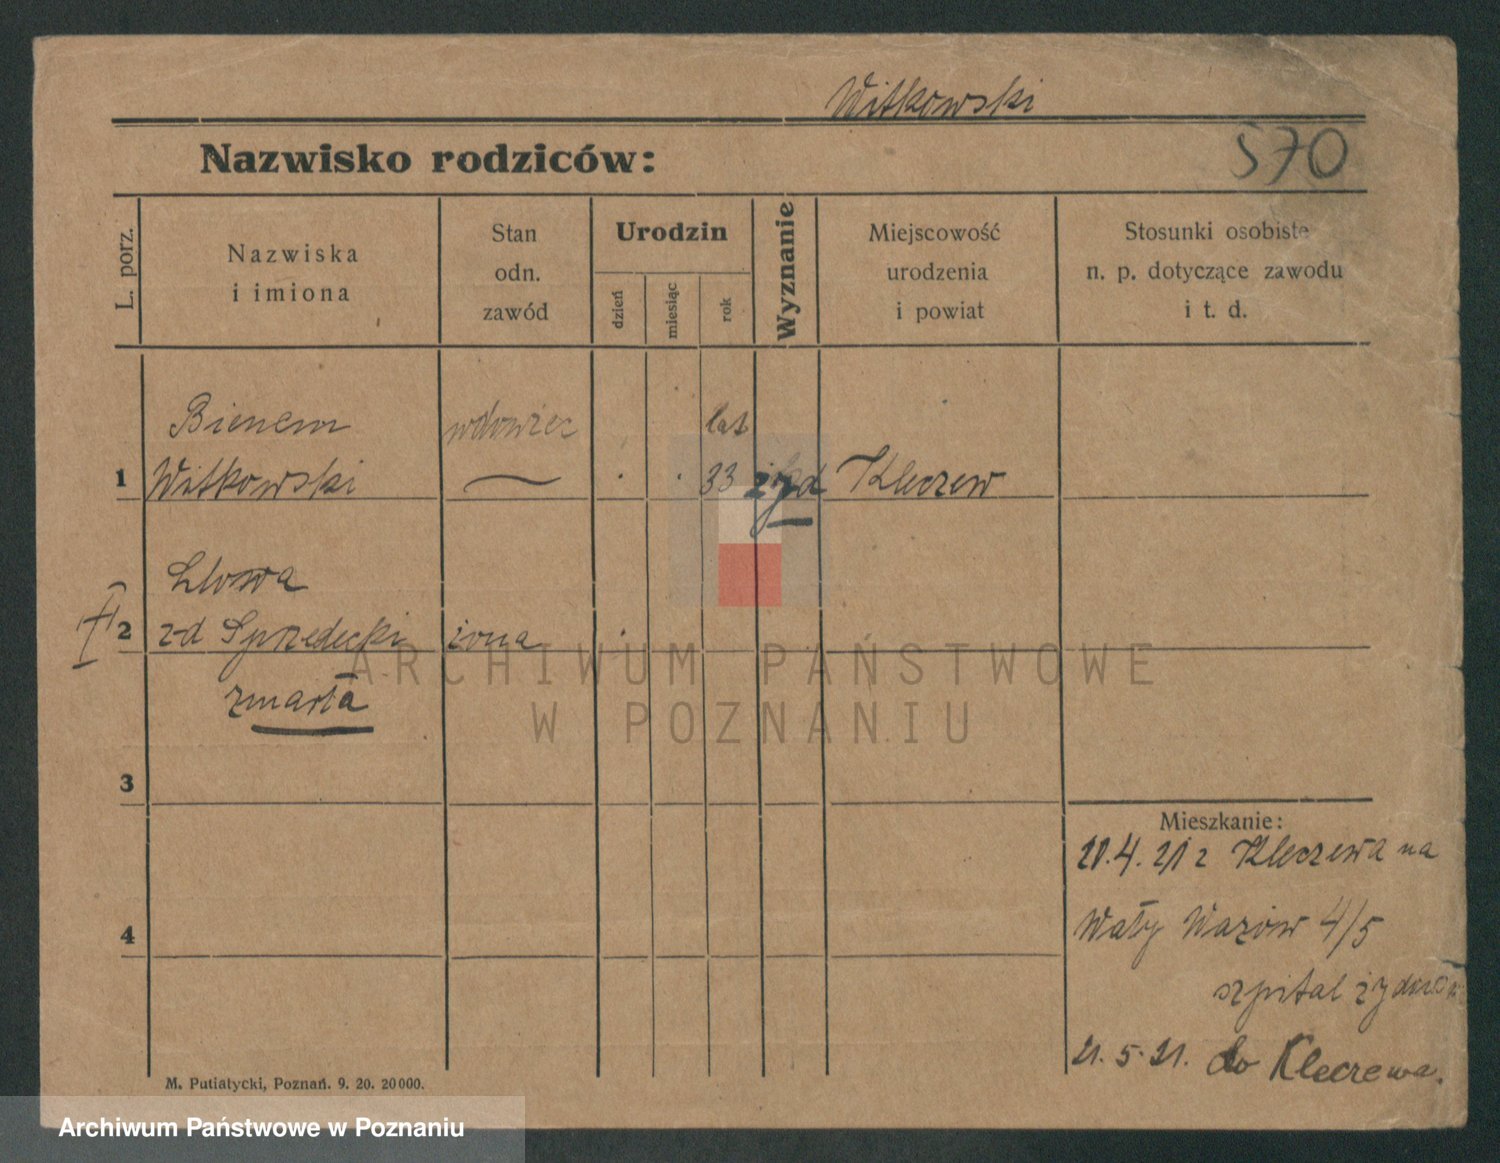 Witkowski
Nazwisko rodziców:
570
L. porz.
Nazwiska
i imiona
Stan
odn.
zawód
Urodzin
dzień
miesiąc
rok
Wyznanie
Miejscowość
urodzenia
i powiat
Stosunki osobiste
n. p. dotyczące zawodu
i t. d.
Bienem wdowiec lat
1 Witkowski 33 żyd Kleczew
2 z-d Sprzedecki żona
zmarła
3
Mieszkanie:
z Kleczewa na
4
Wały Wazów 4/5
szpital
21. 5. 21. do Kleczewa.
M. Putiatycki, Poznań. 9. 20. 20000.
ARCHIWUM PAŃSTWOWE
W POZNANIU
Archiwum Państwowe w Poznaniu